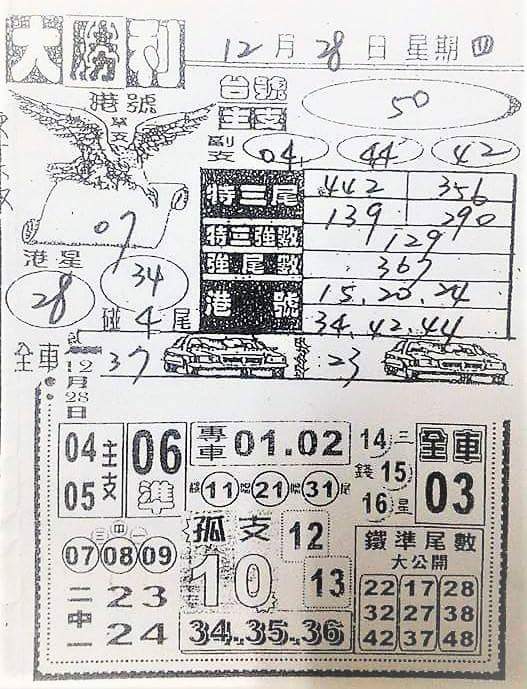 大勝利
12月28日 星期四
港號
單支
07
台號
主支
50
副支 04 44 42
特三尾 442 356
139 290
特三強數 129
強尾數 367
港號 15.20.24
34.42.44
港星
28
34
碰4尾
全車 37 23
12月28日
04 05 主支
06 準
專車 01.02
11 21 31 尾
14 三
錢 15
16 星
全車 03
三中一
07 08 09
二中一 23 24
孤支 10
12
13
34.35.36
鐵準尾數
大公開
22 17 28
32 27 38
42 37 48